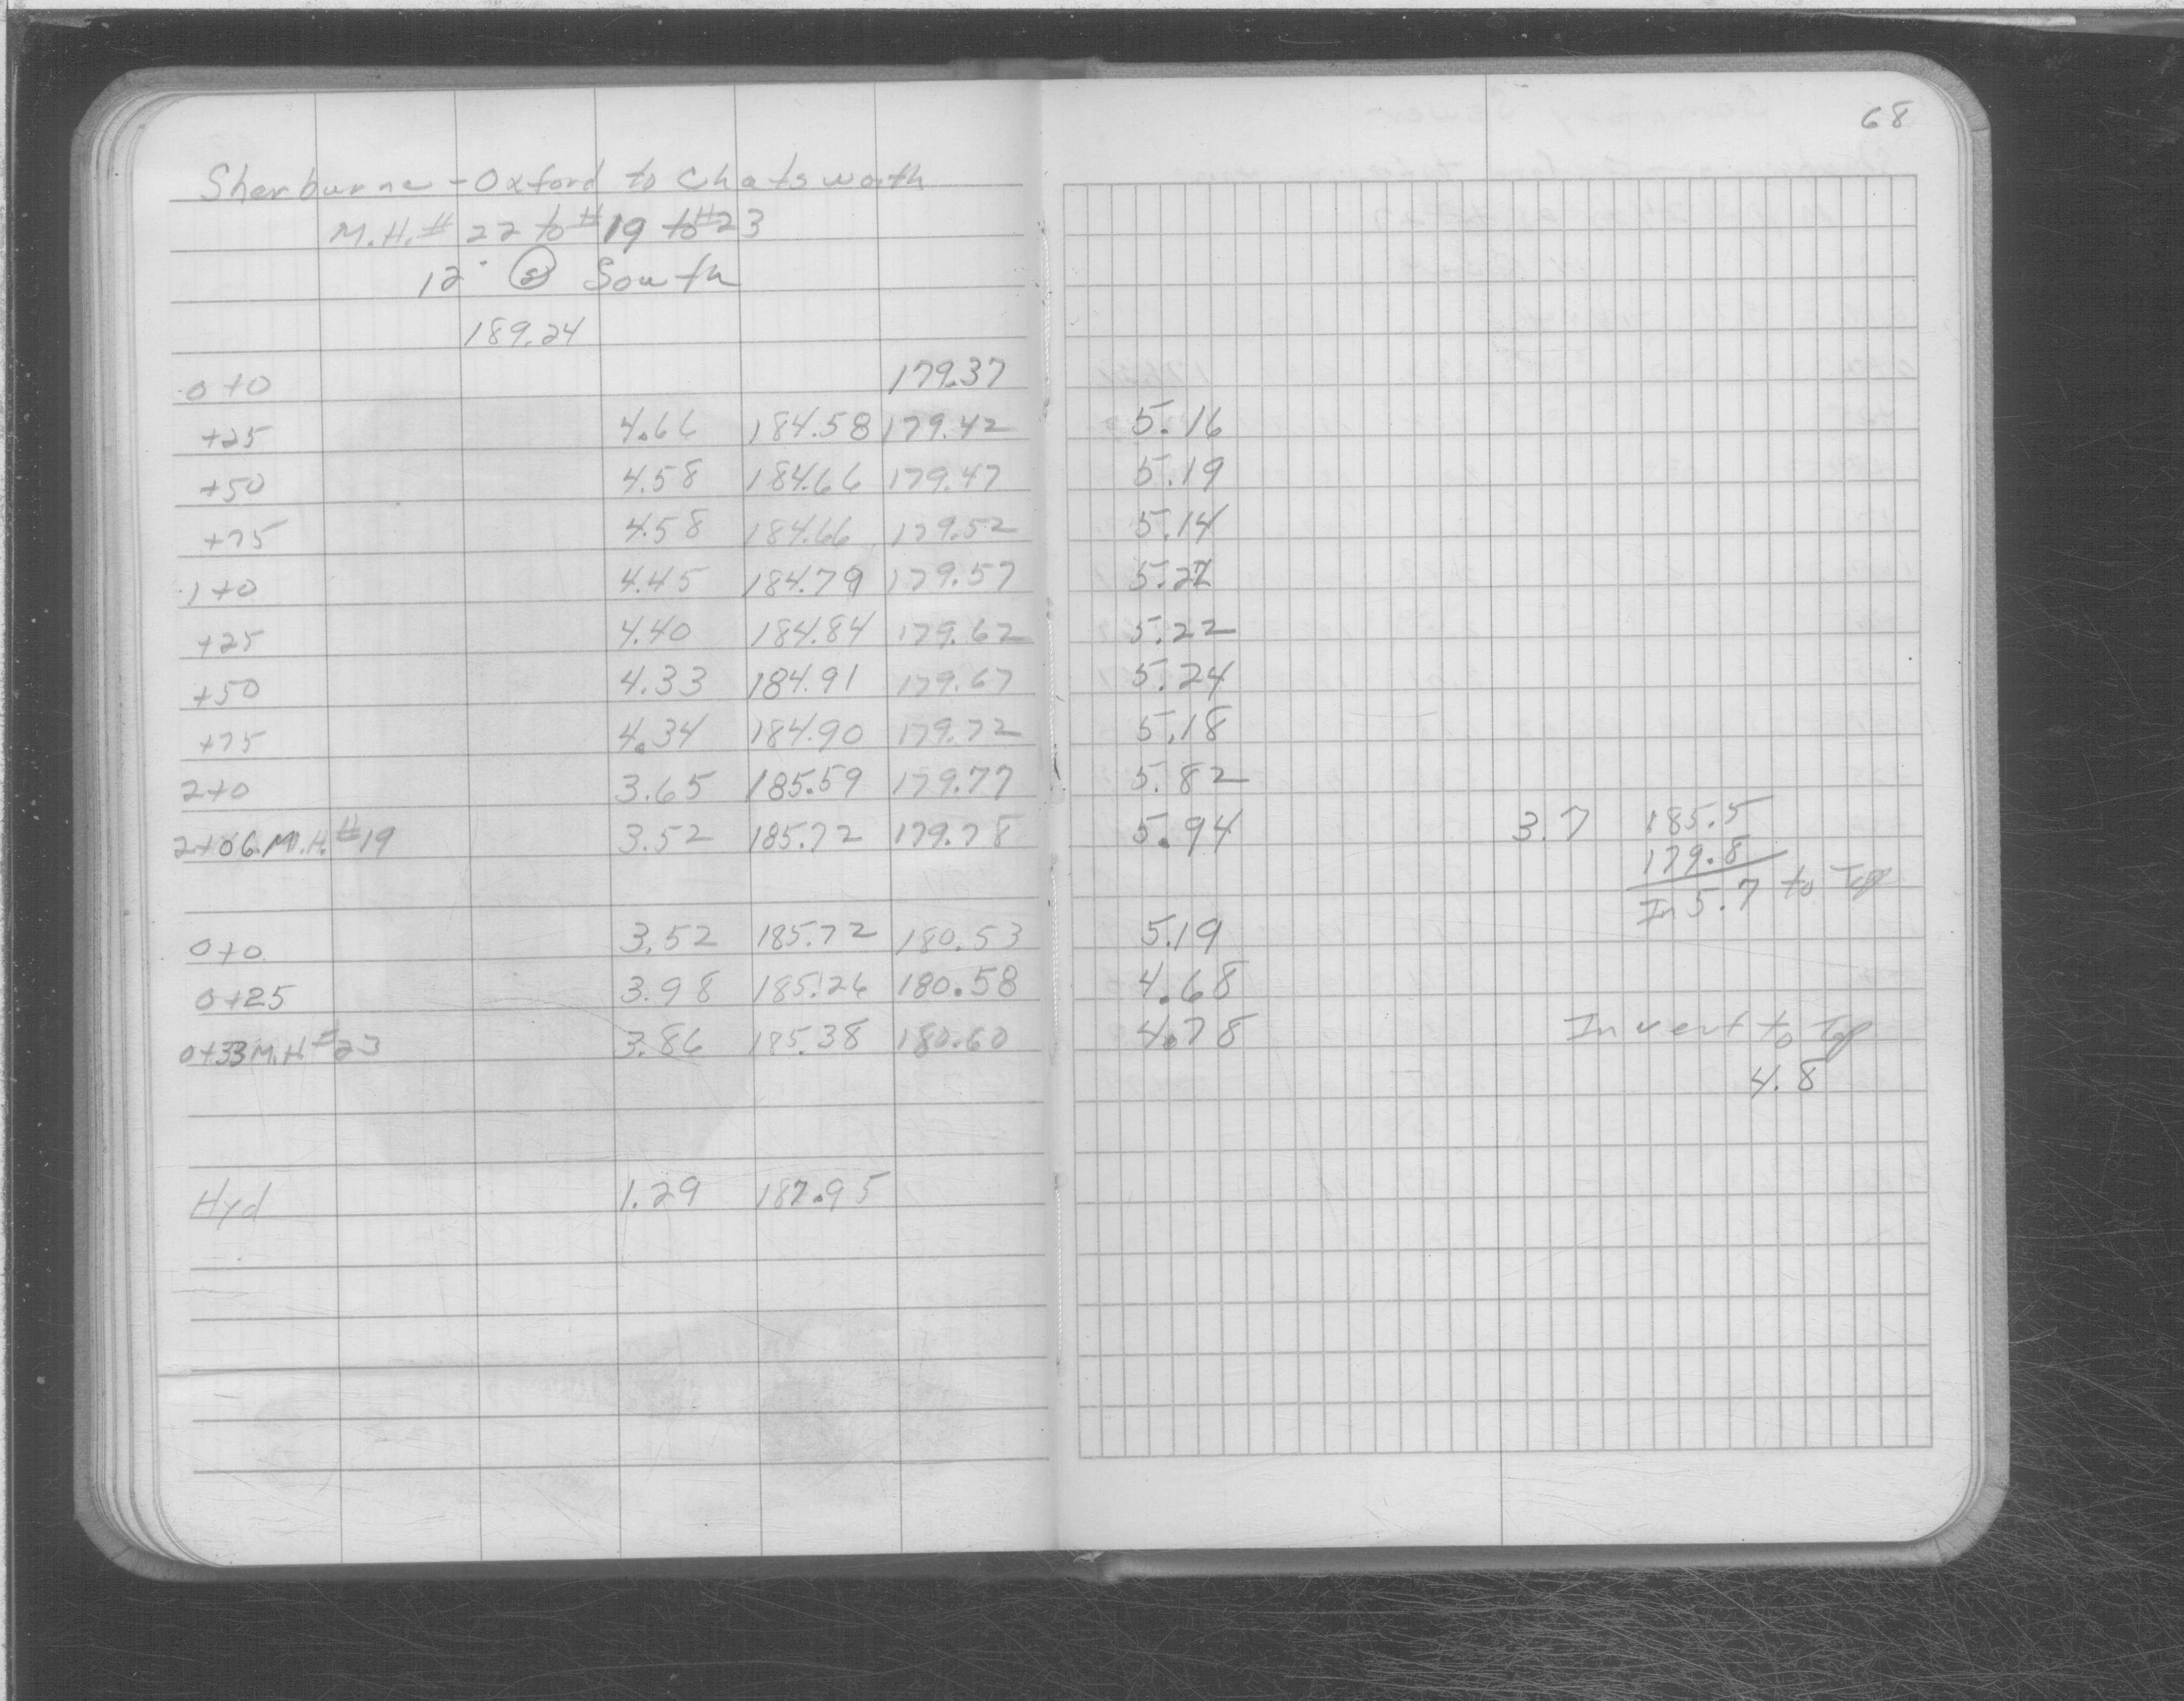 68
Sherburne - Oxford to Chatsworth
M.H. # 22 to # 19 to #23
12" Ⓢ South
189.24
0+0 179.37
+25 4.66 184.58 179.42 5.16
+50 4.58 184.66 179.47 5.19
+75 4.58 184.66 179.52 5.14
1+0 4.45 184.79 179.57 5.22
+25 4.40 184.84 179.62 5.22
+50 4.33 184.91 179.67 5.24
+75 4.34 184.90 179.72 5.18
2+0 3.65 185.59 179.77 5.82
2+06 M.H. #19 3.52 185.72 179.78 5.94 3.7 185.5
179.8
In 5.7 to Top
0+0 3.52 185.72 180.53 5.19
0+25 3.98 185.26 180.58 4.68
0+33 M.H. #23 3.86 185.38 180.60 4.78 Invert to Top
4.8
Hyd 1.29 187.95